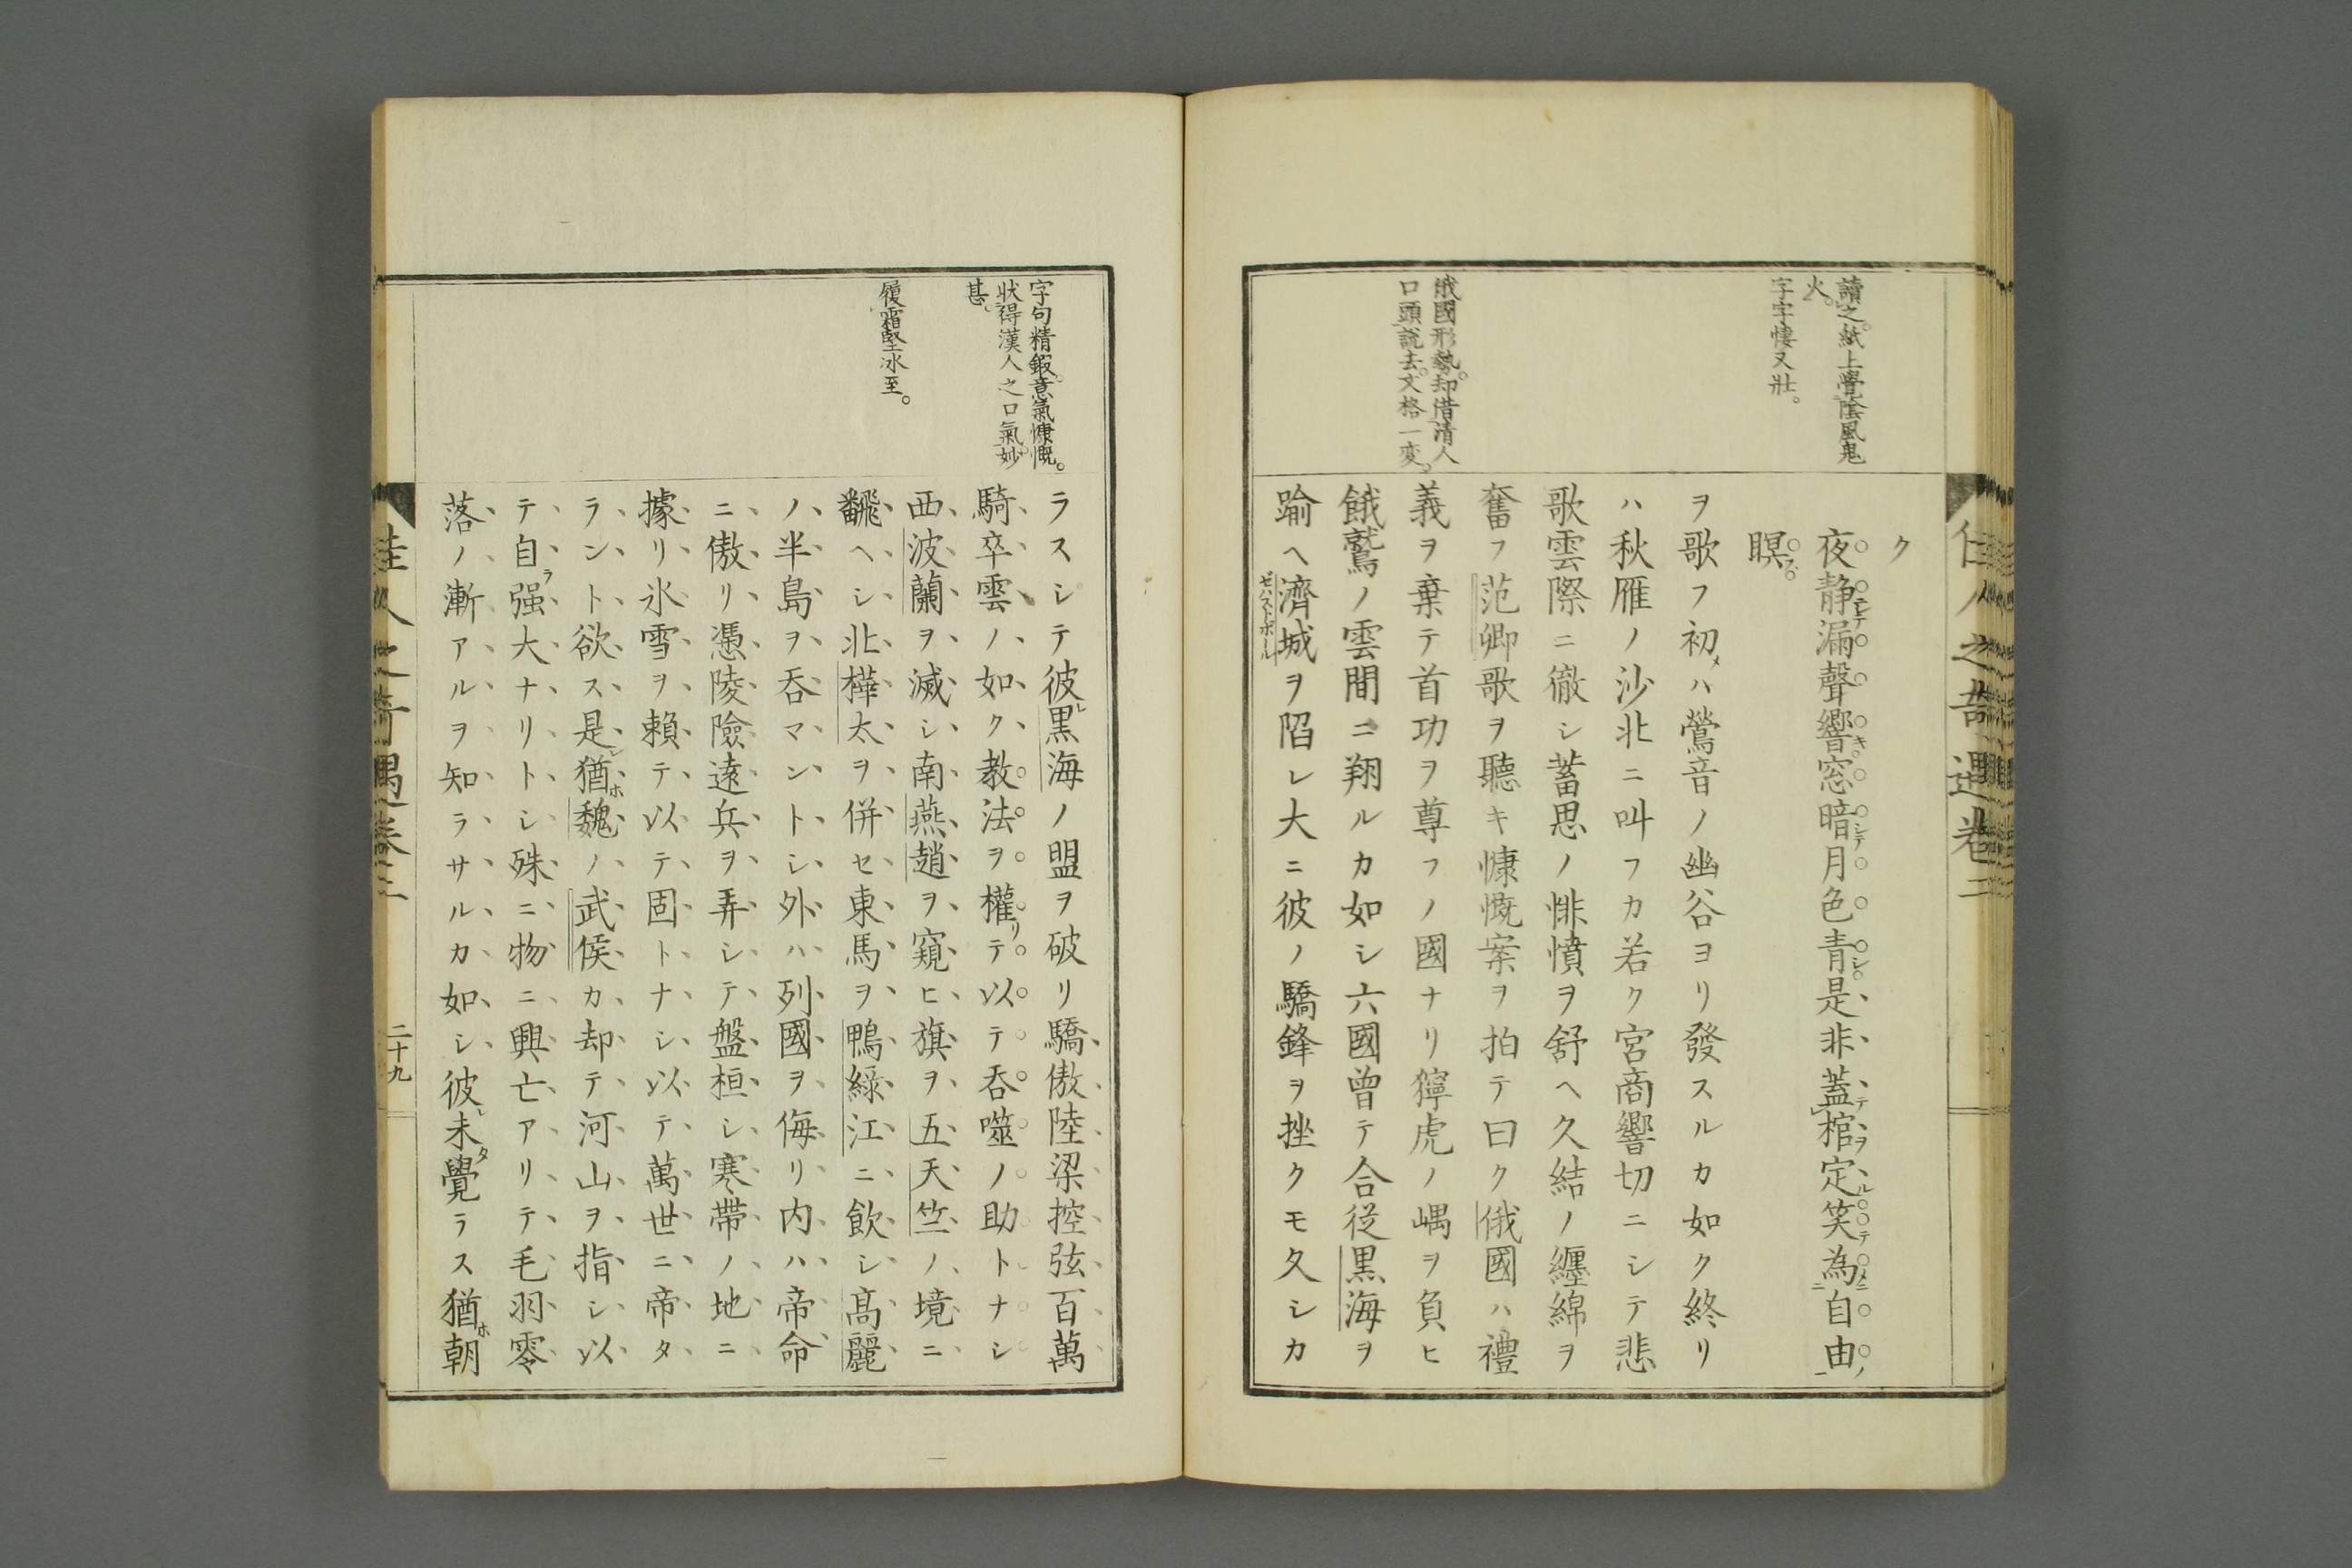 佳人之奇遇卷二
讀之紙上覺陰風鬼
火。
字字悽又壯。
俄國形勢。却借清人
口頭説去。文格一変。
ク
夜静漏聲響窓暗月色青是非蓋棺定笑為自由
瞑
ヲ歌フ初メハ鶯音ノ幽谷ヨリ發スルカ如ク終リ
ハ秋雁ノ沙北ニ叫フカ若ク宮商響切ニシテ悲
歌雲際ニ徹シ蓄思ノ悱憤ヲ舒ヘ久結ノ纏綿ヲ
奮フ范卿歌ヲ聽キ慷慨案ヲ拍テ曰ク俄國ハ禮
義ヲ棄テ首功ヲ尊フノ國ナリ獰虎ノ嵎ヲ負ヒ
餓鷲ノ雲間ニ翔ルカ如シ六國曾テ合從黒海ヲ
踰ヘ濟城ヲ陷レ大ニ彼ノ驕鋒ヲ挫クモ久シカ
ゼバストポール
字句精鍜。意氣慷慨。
状得漢人之口氣妙
甚。
履霜堅冰至。
ラスシテ彼レ黒海ノ盟ヲ破リ驕傲陸梁控弦百萬
騎卒雲ノ如ク教法ヲ權リテ以テ呑噬ノ助トナシ
西波蘭ヲ滅シ南燕趙ヲ窺ヒ旗ヲ五天竺ノ境ニ
飜ヘシ北樺太ヲ併セ東馬ヲ鴨綠江ニ飲シ髙麗
ノ半島ヲ呑マントシ外ハ列國ヲ侮リ内ハ帝命
ニ傲リ憑陵險遠兵ヲ弄シテ盤桓シ寒帶ノ地ニ
據リ氷雪ヲ頼テ以テ固トナシ以テ萬世ニ帝タ
ラント欲ス是レ猶ホ魏ノ武侯カ却テ河山ヲ指シ以
テ自ラ强大ナリトシ殊ニ物ニ興亡アリテ毛羽零
落ノ漸アルヲ知ラサルカ如シ彼レ未タ覺ラス猶ホ朝
佳人之奇遇卷二
二十九